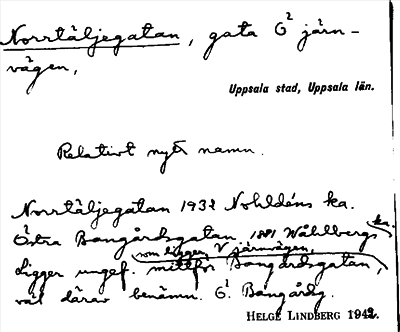 Norrtäljegatan, gata Ö² järn-
vägen,
Uppsala stad, Uppsala län.
Relativt nytt namn.
Norrtäljegatan 1932 Nohldéns ka.
Östra Bangårdsgatan 1881 Wåhlbergs ka.
som ligger V järnvägen,
Ligger ungef. mittför Bangårdsgatan,
väl därav benämn. Ö! Bangårdsg.
HELGE LINDBERG 1942.